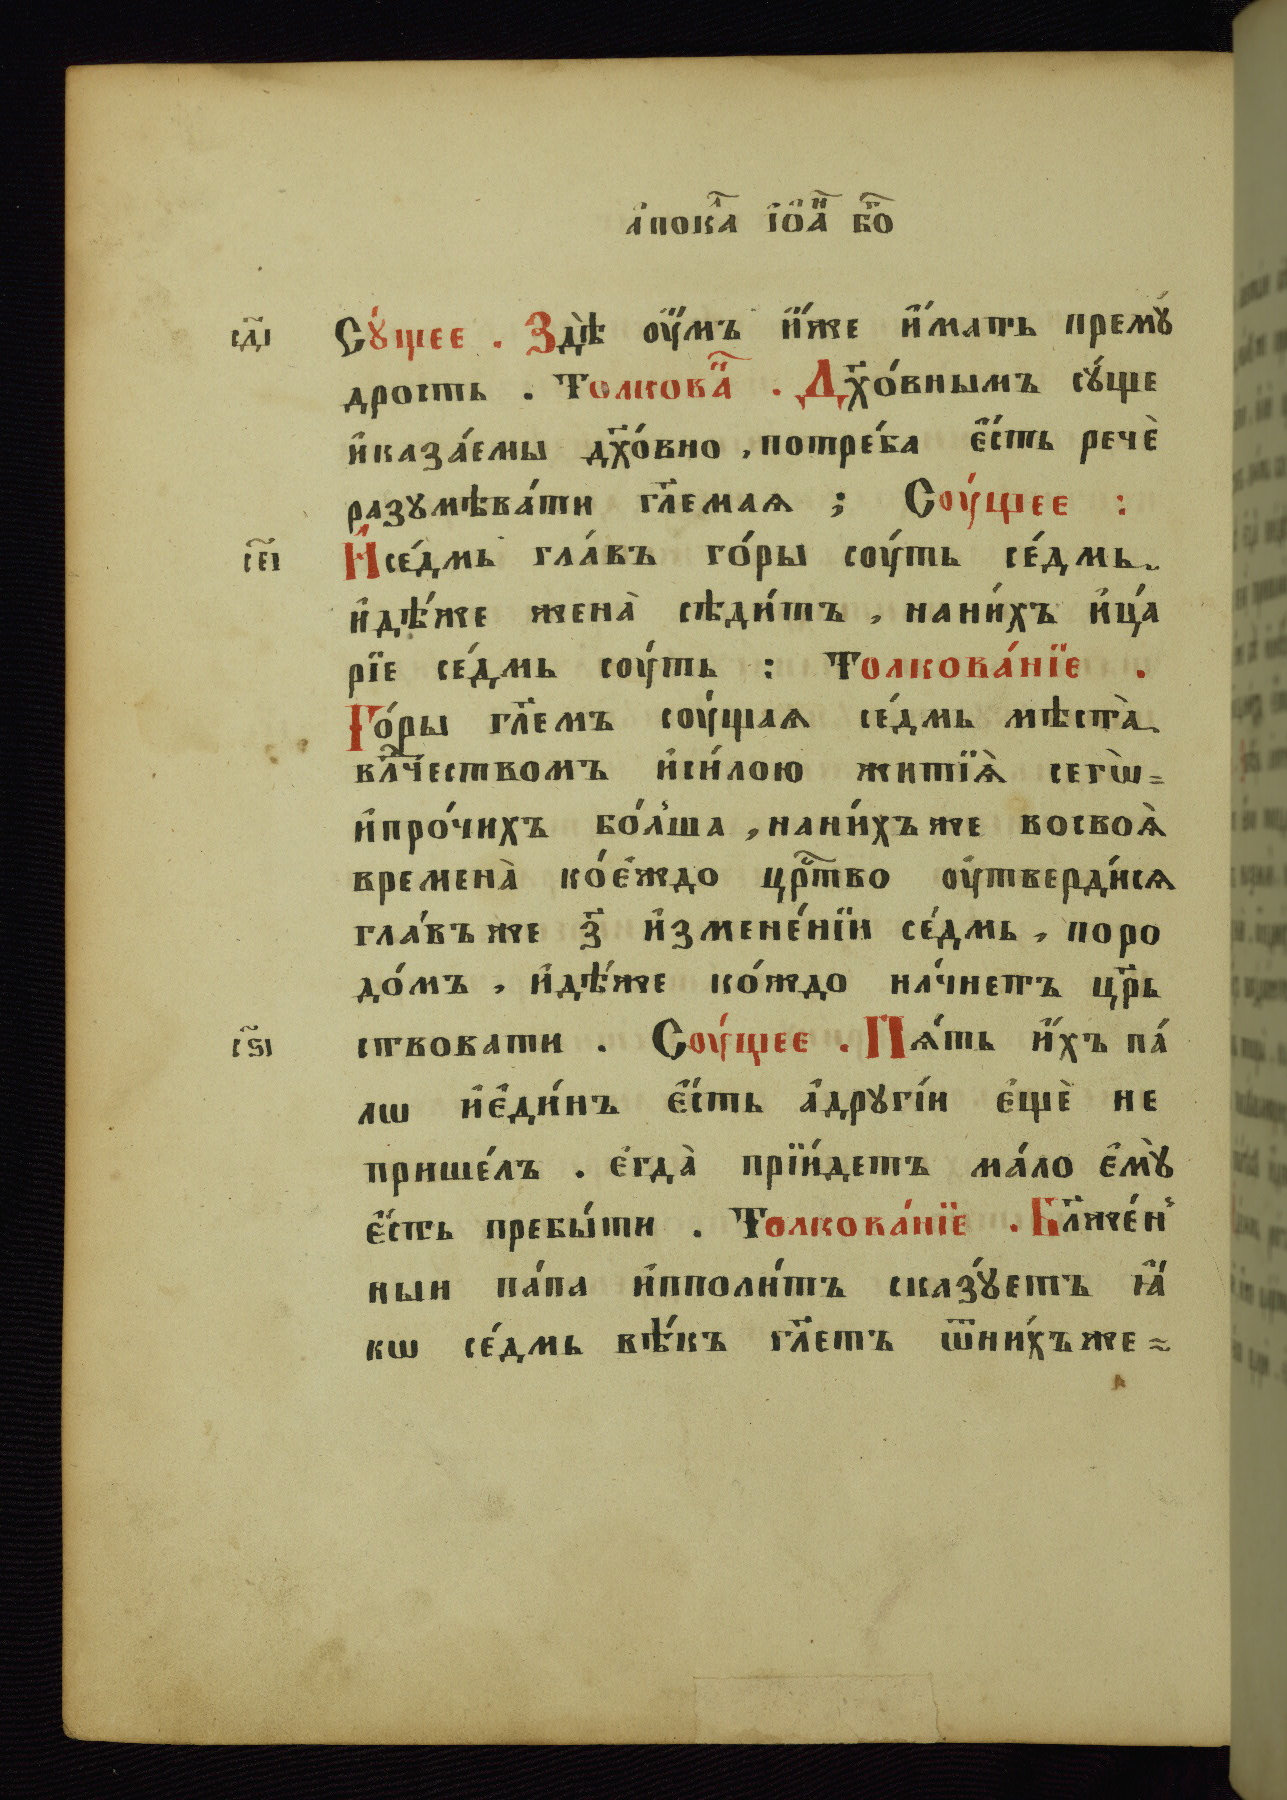 а҆пока́л і҆ѡ҆а́н бг҃о
сд҃і
Сꙋ́щее . Здѣ̀ ᲂу҆́мъ и҆́же и҆́мать премꙋ́
дрость . Толкова́н . Дх҃о́внымъ сꙋ́ще
и҆каза́емы дх҃о́вно , потре́ба є҆́сть речѐ
разꙋмѣва́ти гл҃емаѧ ; Соу́щее :
се҃і
И҆се́дмь гла́въ го́ры соу́ть се́дмь.
и҆дѣ́же жена̀ сѣди́тъ , нани́хъ и҆ца́
рїе се́дмь соу́ть : Толкова́нїе .
Го́ры гл҃емъ соу́щаѧ се́дмь мѣста̀
влⷣчествомъ и҆си́лою житїѧ̀ сегѡ̀
и҆про́чихъ бо́лша , нани́хъже восвоѧ̀
времена̀ ко́є҆ждо црⷭ҇тво ᲂу҆тверди́сѧ
гла́въже з҃ и҆змене́нїи се́дмь , поро
до́мъ , и҆дѣ́же ко́ждо на́чнетъ цр҃ь
ствовати . Соу́щее . Пѧ́ть и҆́хъ па́
сѕ҃і
лѡ и҆є҆ди́нъ є҆́сть а҆дрꙋгі́и є҆щѐ не
прише́лъ . є҆гда̀ прїи́детъ ма́ло є҆мꙋ̀
є҆́сть пребы́ти . Толкова́нїе . Бл҃же́н
ныи па́па и҆пполи́тъ сказꙋ́етъ ꙗ҆́
кѡ се́дмь вѣ́къ гл҃етъ ѿни́хъже